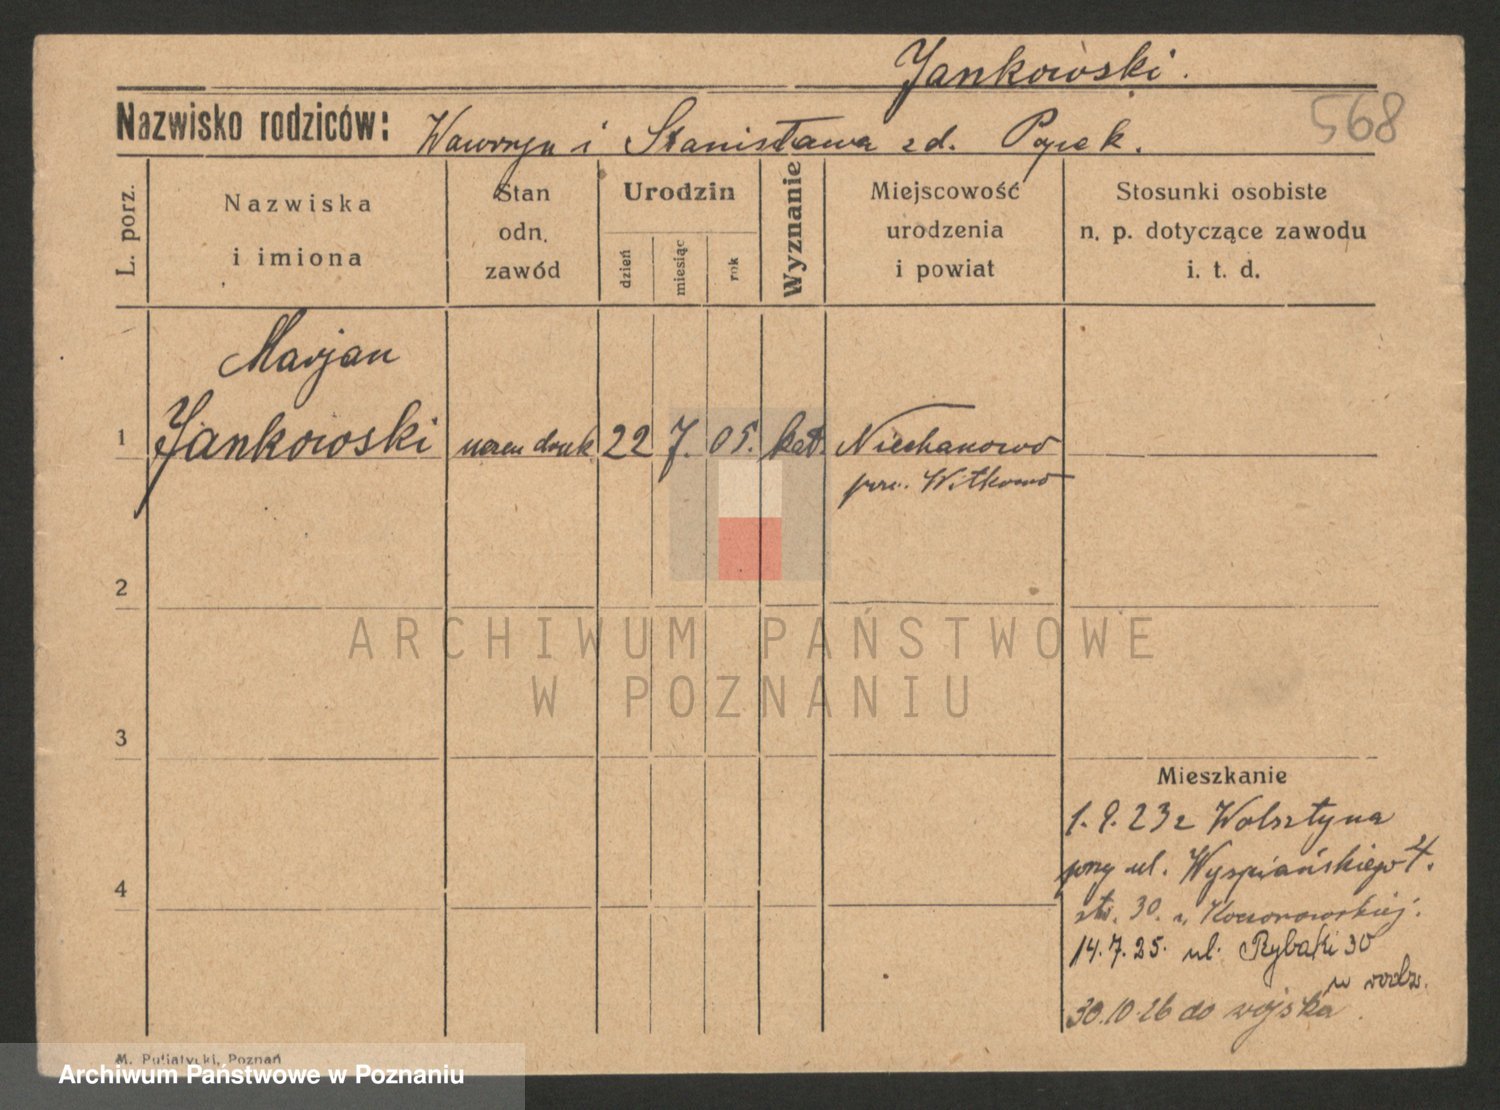 Jankowski.
568
Nazwisko rodziców: Wawrzyn i Stanisława zd. Pyrek.
L. porz.
Nazwiska
i imiona
Stan
odn.
zawód
Urodzin
dzień
miesiąc
rok
Wyznanie
Miejscowość
urodzenia
i powiat
Stosunki osobiste
n. p. dotyczące zawodu
i. t. d.
Marjan
1 Jankowski uczeń druk 22 7. 05. kat. Niechanowo
pow. Witkowo
2
ARCHIWUM PAŃSTWOWE
W POZNANIU
3
Mieszkanie
1.9.23 z Wolsztyna
przy ul. Wyspiańskiego 4.
4
30. u
14.7.25. ul. Rybaki 30
u rodz.
30.10.26 do wojska.
M. Putiatycki, Poznań
Archiwum Państwowe w Poznaniu